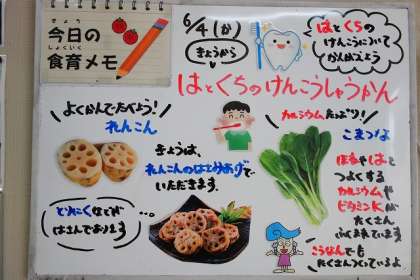 きょう
今日の
しょくいく
食育メモ
6/4(か)
きょうから
はとくちの
けんこうについて
かんがえよう
はとくちのけんこうしゅうかん
よくかんでたべよう!
れんこん
きょうは、
れんこんのはさみあげで
いただきます。
とりにくなどが
はさんであります
カルシウムたっぷり!
こまつな
ほねやはを
つよくする
カルシウムや
ビタミンKが
たくさん
ふくまれています。
こうなんでも
たくさんつくっているよ